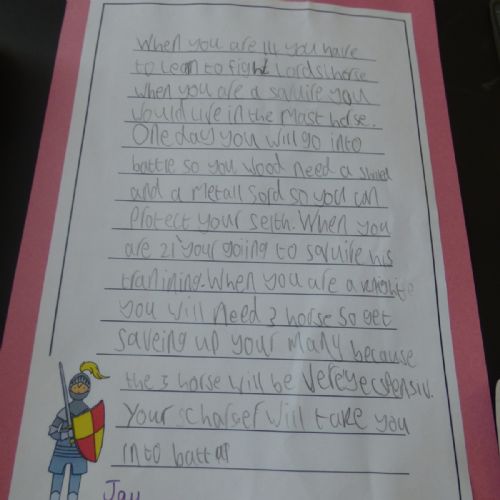 When you are 14 you have
to lean to fight Lords horse
when you are a squire you
would live in the mast horse.
One day you will go into
battle so you wood need a shield
and a metall sord so you can
Protect your selth. When you
are 21 your going to squire his
tranining. When you are a knighte
you will need 3 horse so get
saveing up your many because
the 3 horse will be vereye
Your scharser will take you
into batt
Jay